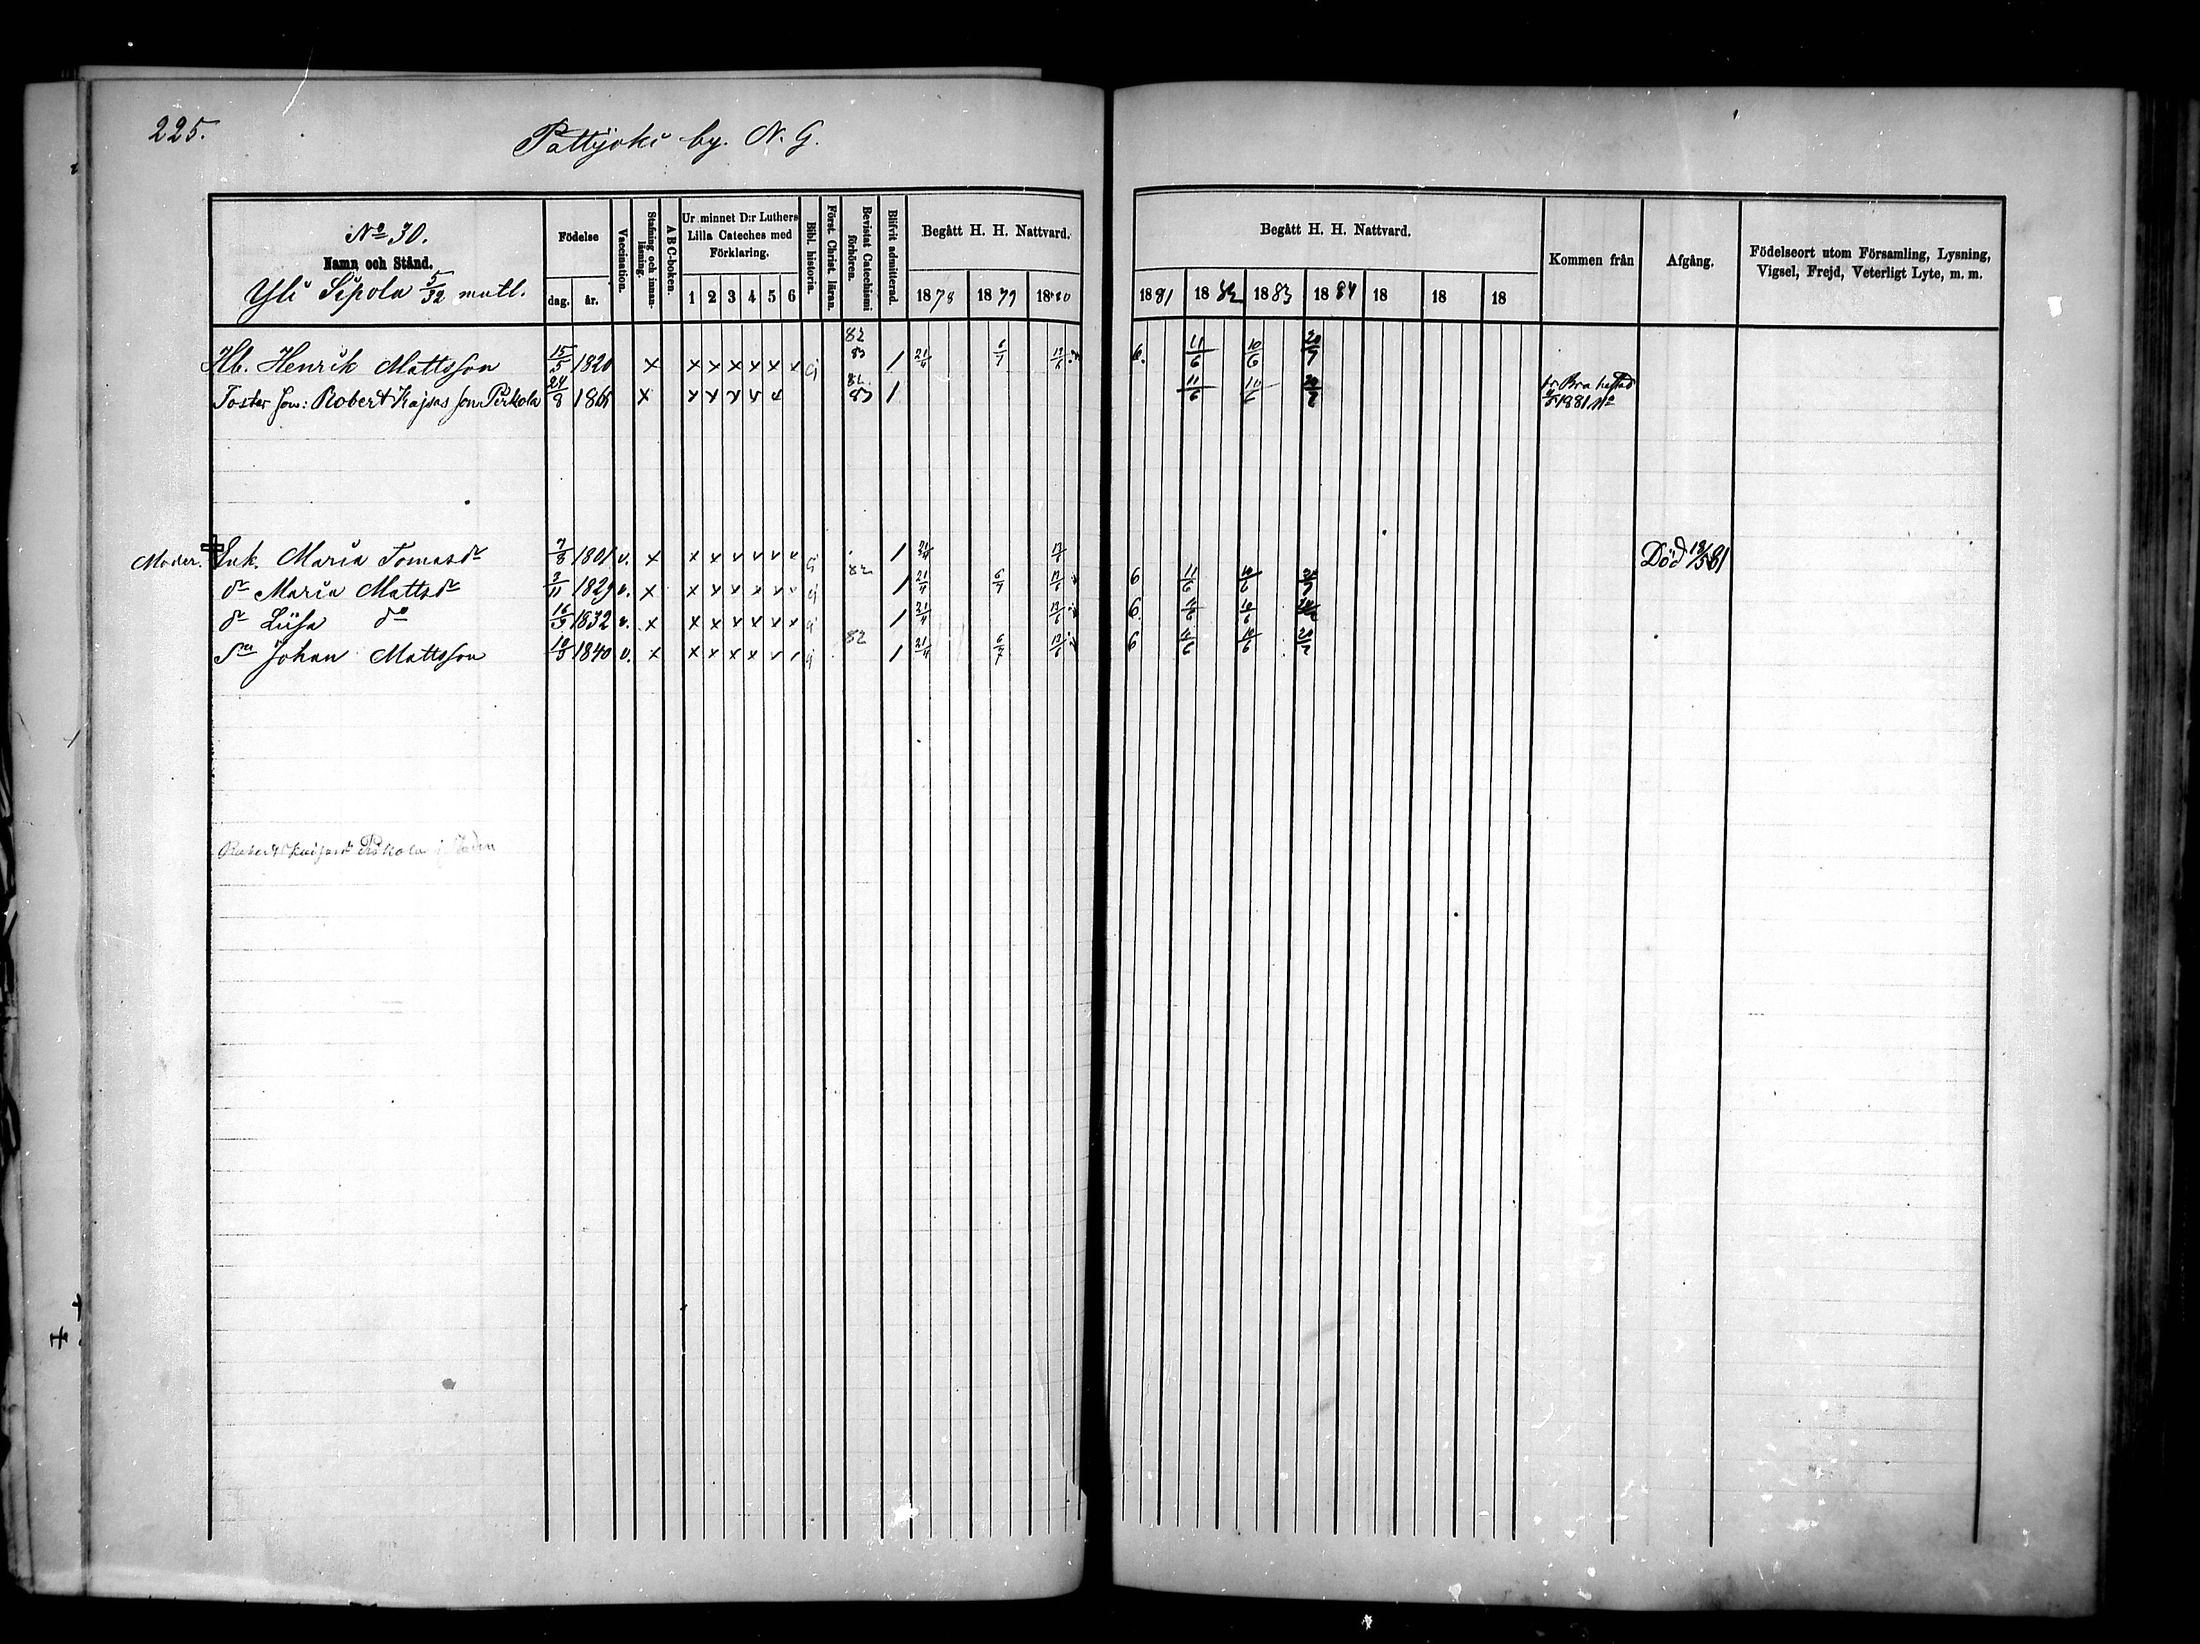 225.
Pattijoki by. N. G.
No 30.
Namn och Stånd.
Yli Sipola 5/32 mutl.
Födelse
dag. år.
Vaccination.
Stafning och innanläsning.
A B C-boken.
Ur minnet D:r Luthers Lilla Cateches med Förklaring.
1 2 3 4 5 6
Bibl. historia.
Först. Christ. läran.
Bevistat Catechismi förhören.
Blifvit admitterad.
Begått H. H. Nattvard.
1878 1879 1880
Begått H. H. Nattvard.
1881 1882 1883 1884 18 18 18
Kommen från
Afgång.
Födelseort utom Församling, Lysning, Vigsel, Frejd, Veterligt Lyte, m. m.
Hb. Henrik Mattsson 15/5 1820 x x x x x x x 82 83 1 21/4 6/7 13/6 6. 11/6 10/6 20/7
Foster son: Robert Kajsas son Pirkola 24/8 1861 x x x x x x 82. 83 1 11/6 10/6 20/7 fr Brahestad 1881 No
Moder. Enk. Maria Tomasdr 7/8 1801 v. x x x x x x x 1 21/4 13/6 Död 18/5 81
dr Maria Mattsdr 3/11 1829 v. x x x x x x 82 1 21/4 6/7 13/6 6 11/6 10/6 20/7
dr Liisa do 16/9 1832 v. x x x x x x x 1 21/4 13/6 6. 11/6 10/6
Sn Johan Mattsson 1840 v. x x x x x x 82 1 21/4 6/7 13/6 6 11/6 10/6 20/7
Robert Pirkola i staden